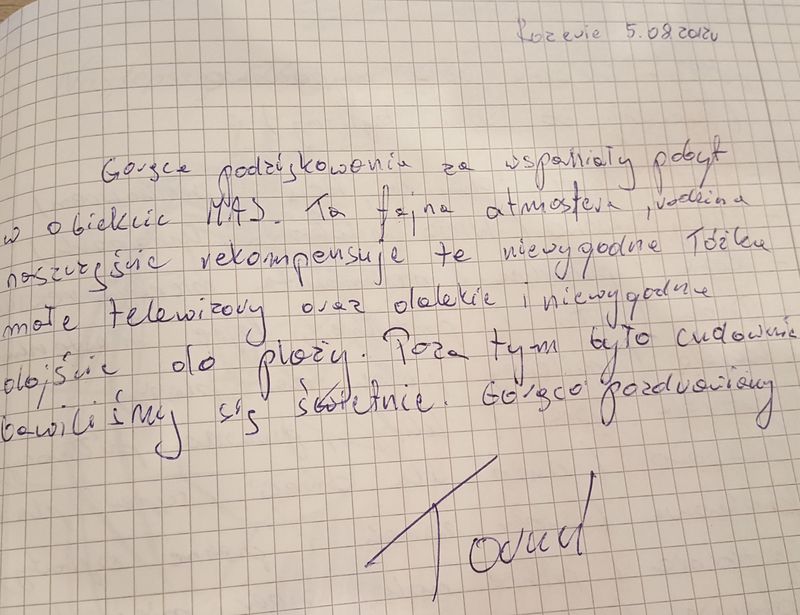 Rozewie 5.08.2020
Gorące podziękowania za wspaniały pobyt
w obiekcie MAJ. Ta fajna atmosfera, rodzina
naszczęście rekompensuje te niewygodne łóżka
małe telewizory oraz dalekie i niewygodne
dojście do plaży. Poza tym było cudownie
bawiliśmy się świetnie. Gorąco pozdrawiamy